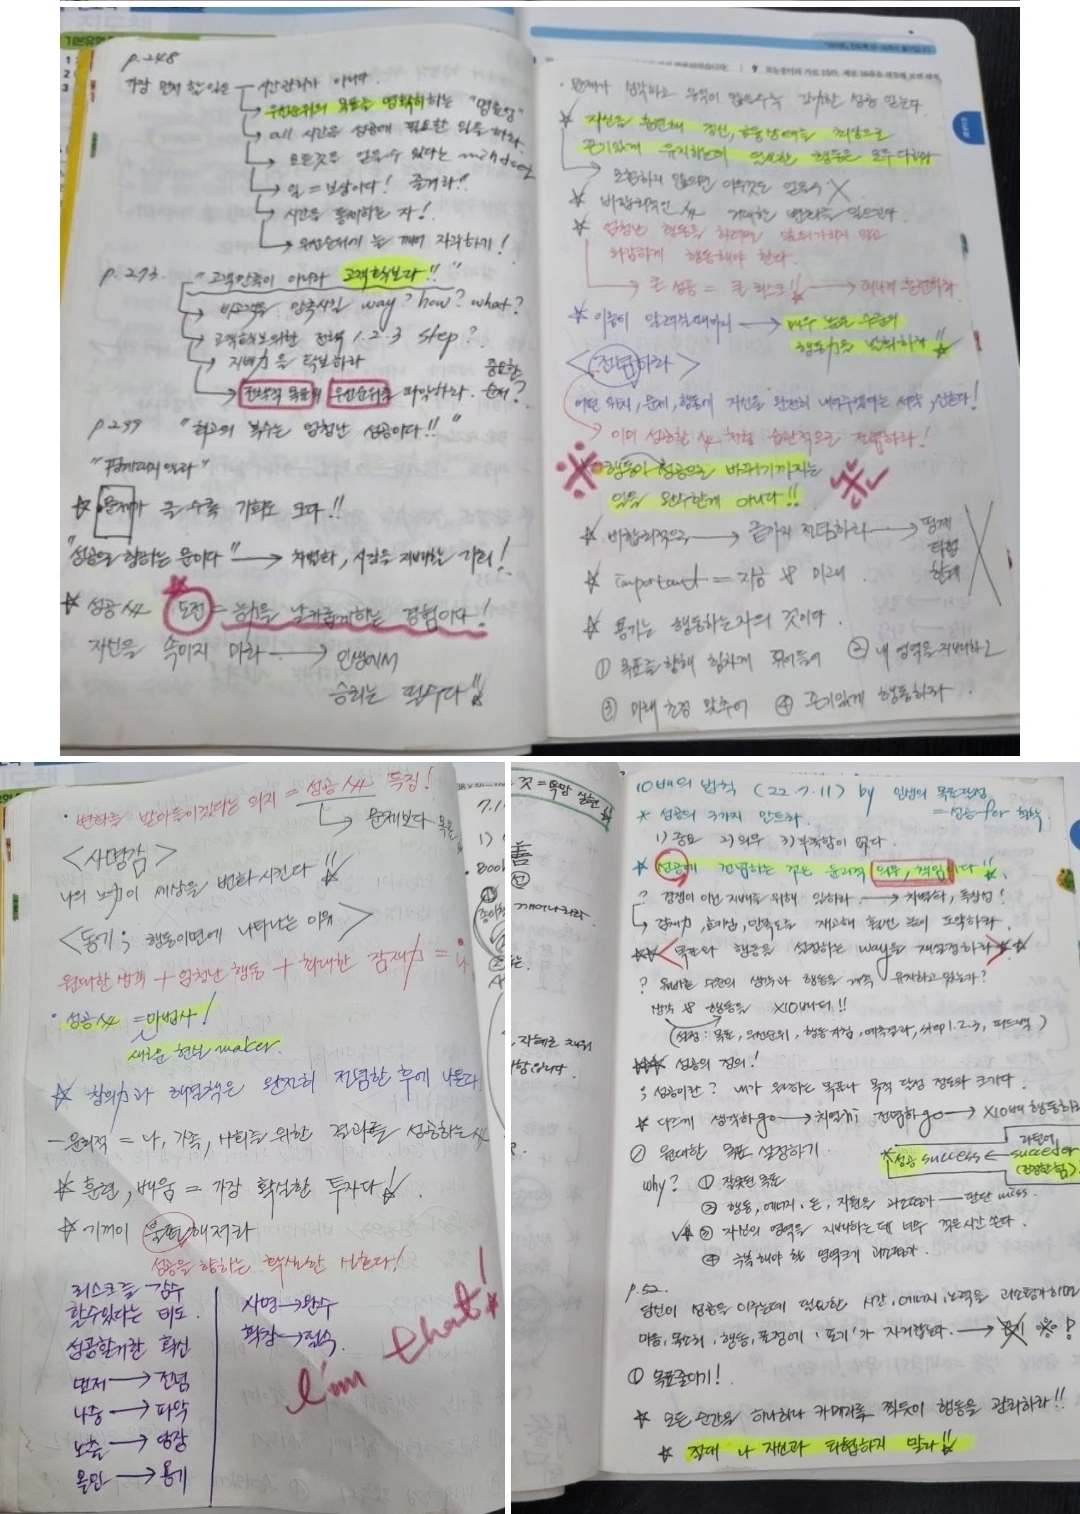 p.248
가장 먼저 할일은 — 시간관리가 아니다.
우선순위와 목표를 명확히하는 "명료성"
all 시간을 성공에 필요한 일을 하라.
모든것은 얻을수 있다는 mindset
일 = 보상이다! 즐겨라!!
시간을 통제하는 자!
우선순위에 늘 깨어 자각하기!
p.273. "고객만족이 아니라 고객확보다!!"
비고객을 만족시킬 way? how? what?
고객확보위한 전략 1.2.3 step?
지배力을 확보하라
전략적 목표와 우선순위를 파악하라. 중요한 순서?
p.299 "최고의 복수는 엄청난 성공이다!!"
"핑계대지 말라"
☆ 문제가 클수록 기회도 크다!!
"성공으로 향하는 문이다" → 차별화, 시간을 지배하는 거리!
☆ 성공人 도전 = 능력을 날카롭게하는 경험이다!
자신을 속이지 마라 → 인생에서
승리는 필수다!!
· 문제가 심각하고 많을수록 강력한 성공 얻는다.
☆ 자신을 훈련해 정신, 감정상태를 최상으로
끈기있게 유지하는데 필요한 행동은 모두 다하라
포함하지 않으면 아무것도 얻을수 X
☆ 비합리적인 人 거대한 변화를 일으킨다.
☆ 엄청난 행동을 하려면 망설이지 말고
과감하게 행동해야 한다.
큰 성공 = 큰 리스크!!
☆ 이름이 알려질때까지 → 매우 높은 수준의
행동力을 발휘하라!!
<전념하라>
어떤 위치, 문제, 행동에 자신을 완전히 내어주겠다는 서약, 선언!
이미 성공한 人처럼 습관적으로 전념하라!
※ 행동이 성공으로 바뀌기까지는 ※
일을 완수한게 아니다!!
☆ 비합리적으로 → 끝까지 전념하라 → 핑계 타협 한계 X
☆ important = 지금 & 미래.
☆ 용기는 행동하는자의 것이다.
① 목표를 향해 힘차게 뛰어들어 ② 내 영역을 지배하고
③ 미래 초점 맞추어 ④ 끈기있게 행동하라.
· 변화를 받아들이겠다는 의지 = 성공人 특징!
문제보다 목표
<사명감>
나의 노력이 세상을 변화시킨다!!
<동기; 행동이면에 나타나는 이유>
원대한 생각 + 엄청난 행동 + 확대한 잠재力 = 나
· 성공人 = 마법사!
새로운 현실 maker.
☆ 창의力과 해결책은 완전히 전념한 후에 나온다.
— 윤리적 = 나, 가족, 사회를 위한 결과를 성공하는 人
☆ 훈련, 배움 = 가장 확실한 투자다!
☆ 기꺼이 불편해져라
성공을 향하는 확실한 신호다!
리스크를 감수
할수있다는 태도.
성공할거란 확신
먼저 → 전념
나중 → 파악
노출 → 성장
몰입 → 용기
사명 → 완수
확장 → 접속.
I'm that!
것 = 욕망 실현
7.1
1)
Book
善
선
깨어나리라
10배의 법칙 (22.7.11) by 인생의 목표달성
= 성공 for 철학.
☆ 성공의 3가지 만트라.
1) 중요 2) 의무 3) 부족함이 없다.
☆ 성공에 전념하는 것은 윤리적 의무, 책임이다!!
? 경쟁이 아닌 지배를 위해 일하라. → 차별화, 독창성!
☆☆ 목표와 행동을 설정하는 way을 재설정하라 ☆☆
? 올바른 수준의 생각과 행동을 계속 유지하고 있는가?
생각 & 행동을 X10배더!!
(설정: 목표, 우선순위, 행동지침, 예측결과, step 1.2.3, 피드백)
☆☆☆ 성공의 정의!
; 성공이란? 내가 원하는 목표나 목적 달성 정도와 크기다.
☆ 다르게 생각하go → 치열히 전념하go → X10배 행동하라
☑ 원대한 목표 설정하기.
☆성공 success ← 라틴어 succeder (진정한 힘)
why? ① 잘못된 목표
② 행동, 에너지, 돈, 자원을 과소평가 — 판단 miss.
③ 자신의 영역을 지배하는데 너무 적은시간 쓴다.
④ 극복해야 할 역경크기 과소평가.
p.52.
당신이 성공을 이루는데 필요한 시간, 에너지, 노력을 과소평가하면
마음, 목소리, 행동, 표정에 '포기'가 자리잡는다. → 포기 ※?
① 목표줄이기!
☆ 모든 순간을 하나하나 카메라로 찍듯이 행동을 관리하라!!
☆ 절대 나 자신과 타협하지 말라!!